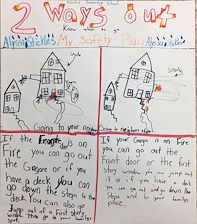 2 Ways out
Know when to go
Alyssa Stickles My Safety Plan Alyssa Stickles
Smoke
Going to your neighbors
Going to neighbors
If the Front is on
Fire you can go out
the Gagare or if you
have a deck you can
go down the Steps in the
deck. You can also go
out of a First story
window
If your Gagare is on Fire
you can go out the
Front door or the first
story window you can jump out
or if you have a deck
you can go out and go down the
Steps and to your family's
place.